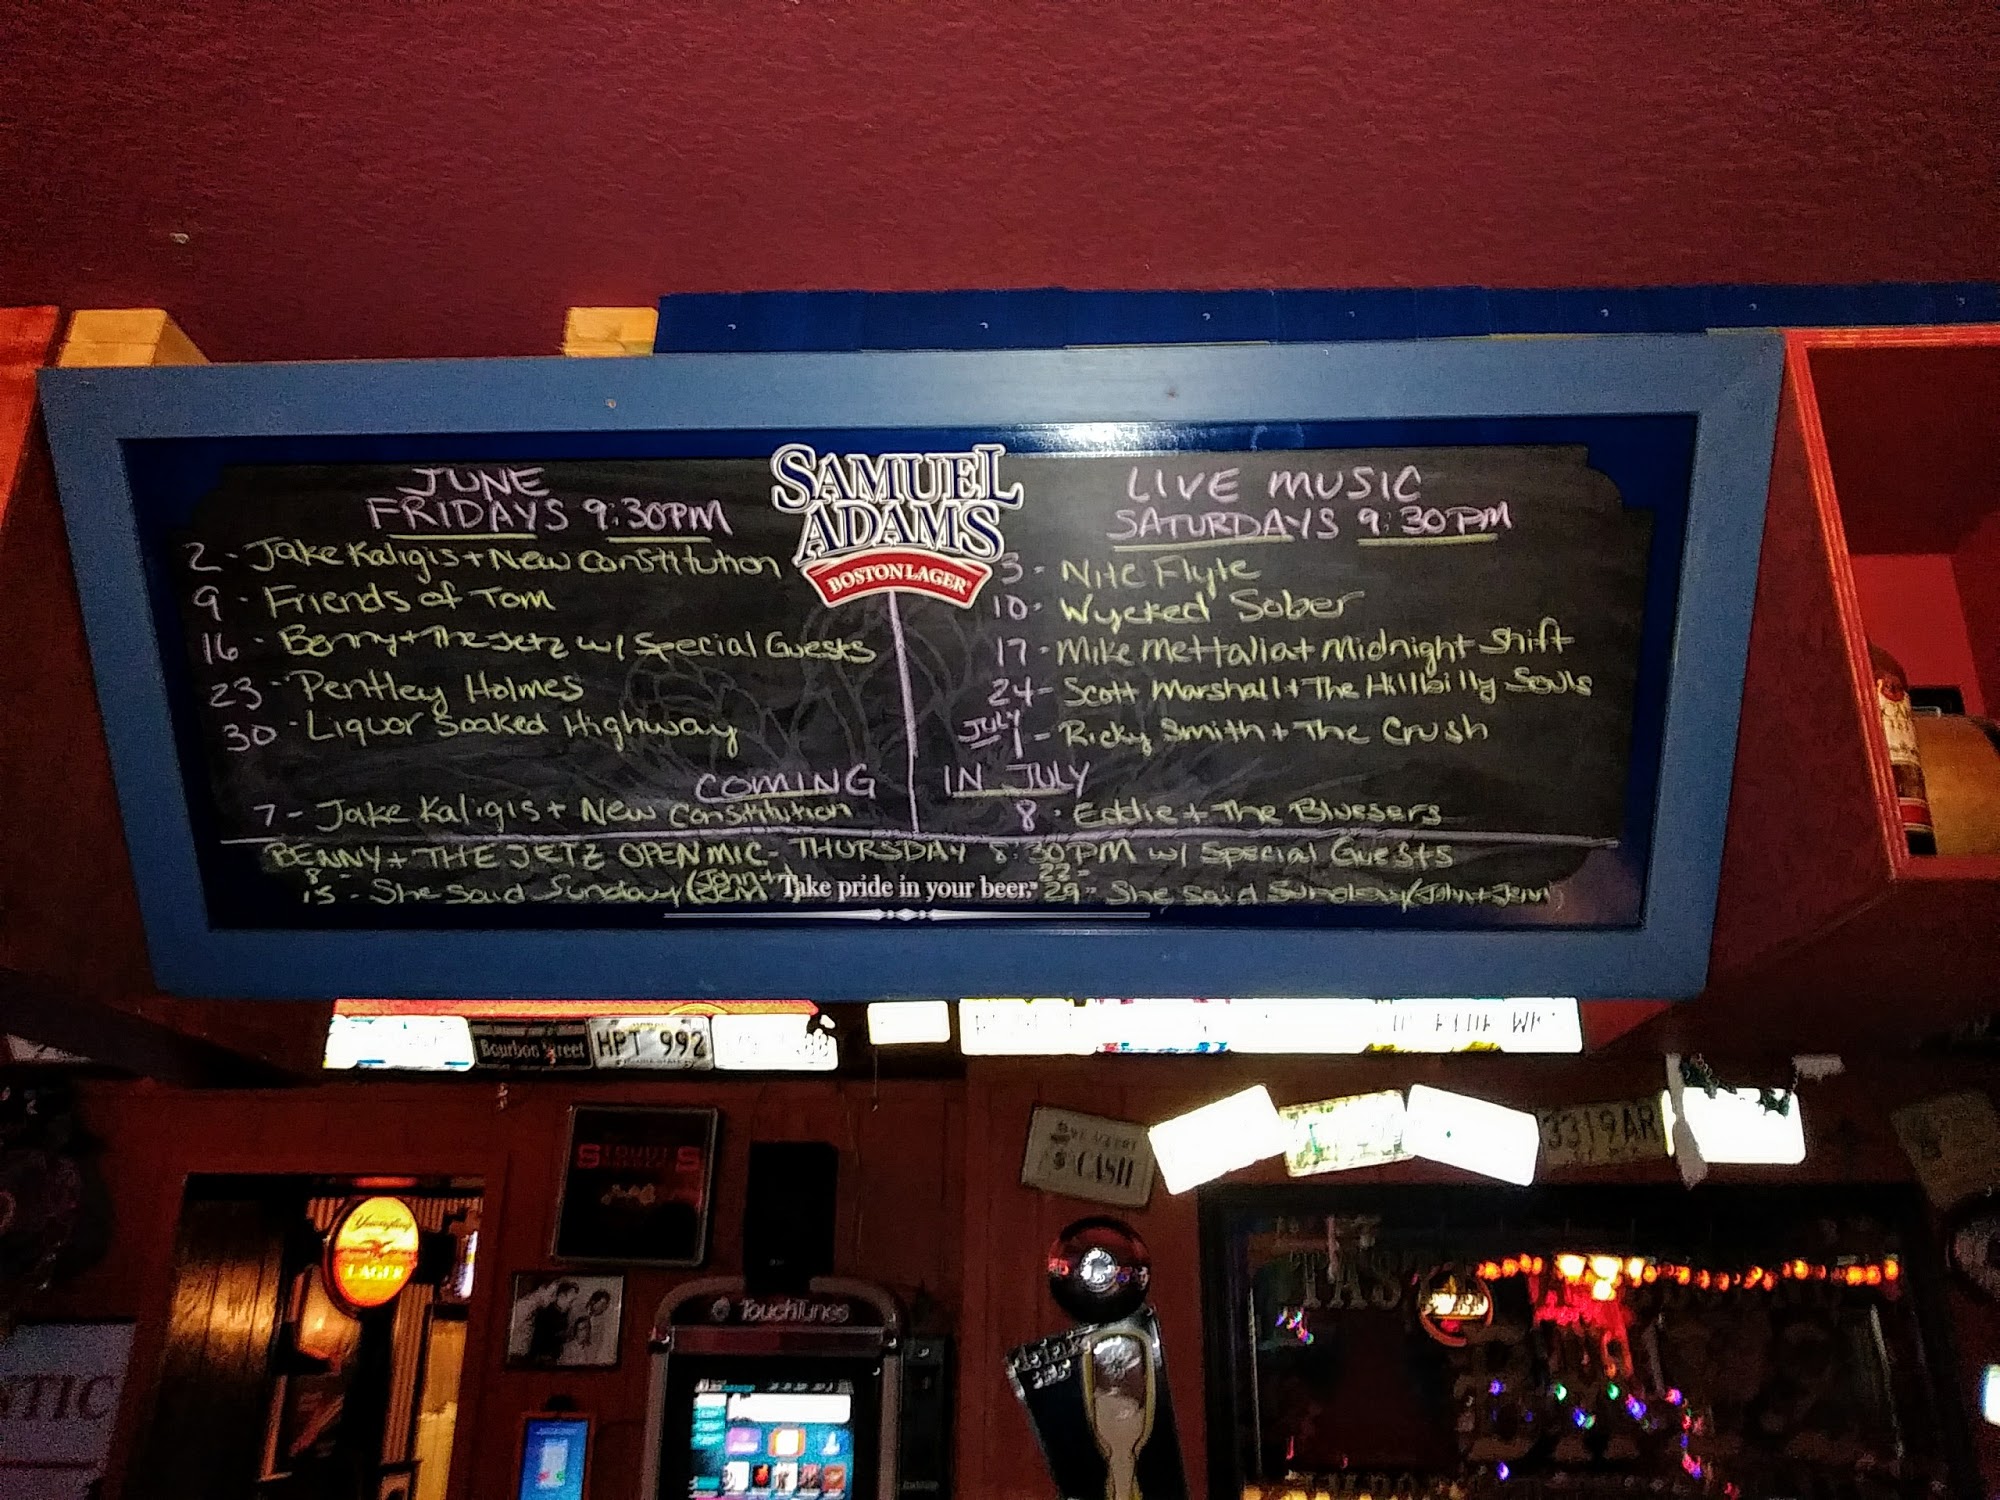 SAMUEL
ADAMS
BOSTON LAGER
JUNE
FRIDAYS 9:30PM
2 - Jake Kaligis + New Constitution
9 - Friends of Tom
16 - Benny + The Jetz w/ Special Guests
23 - Pentley Holmes
30 - Liquor Soaked Highway
LIVE MUSIC
SATURDAYS 9:30PM
3 - Nite Flyte
10 - Wycked Sober
17 - Mike Mettalia + Midnight Shift
24 - Scott Marshall + The Hillbilly Souls
JULY
1 - Ricky Smith + The Crush
COMING IN JULY
7 - Jake Kaligis + New Constitution
8 - Eddie + The Bluesers
BENNY + THE JETZ OPEN MIC - THURSDAY 8:30PM w/ Special Guests
8
15 - She Said Sunday (John + Jenn)
Take pride in your beer.
22 -
29 - She Said Sunday (John + Jenn)
Bourbon Street
HPT 992
CASH
3319AR
Yuengling
LAGER
TouchTunes
TASTE